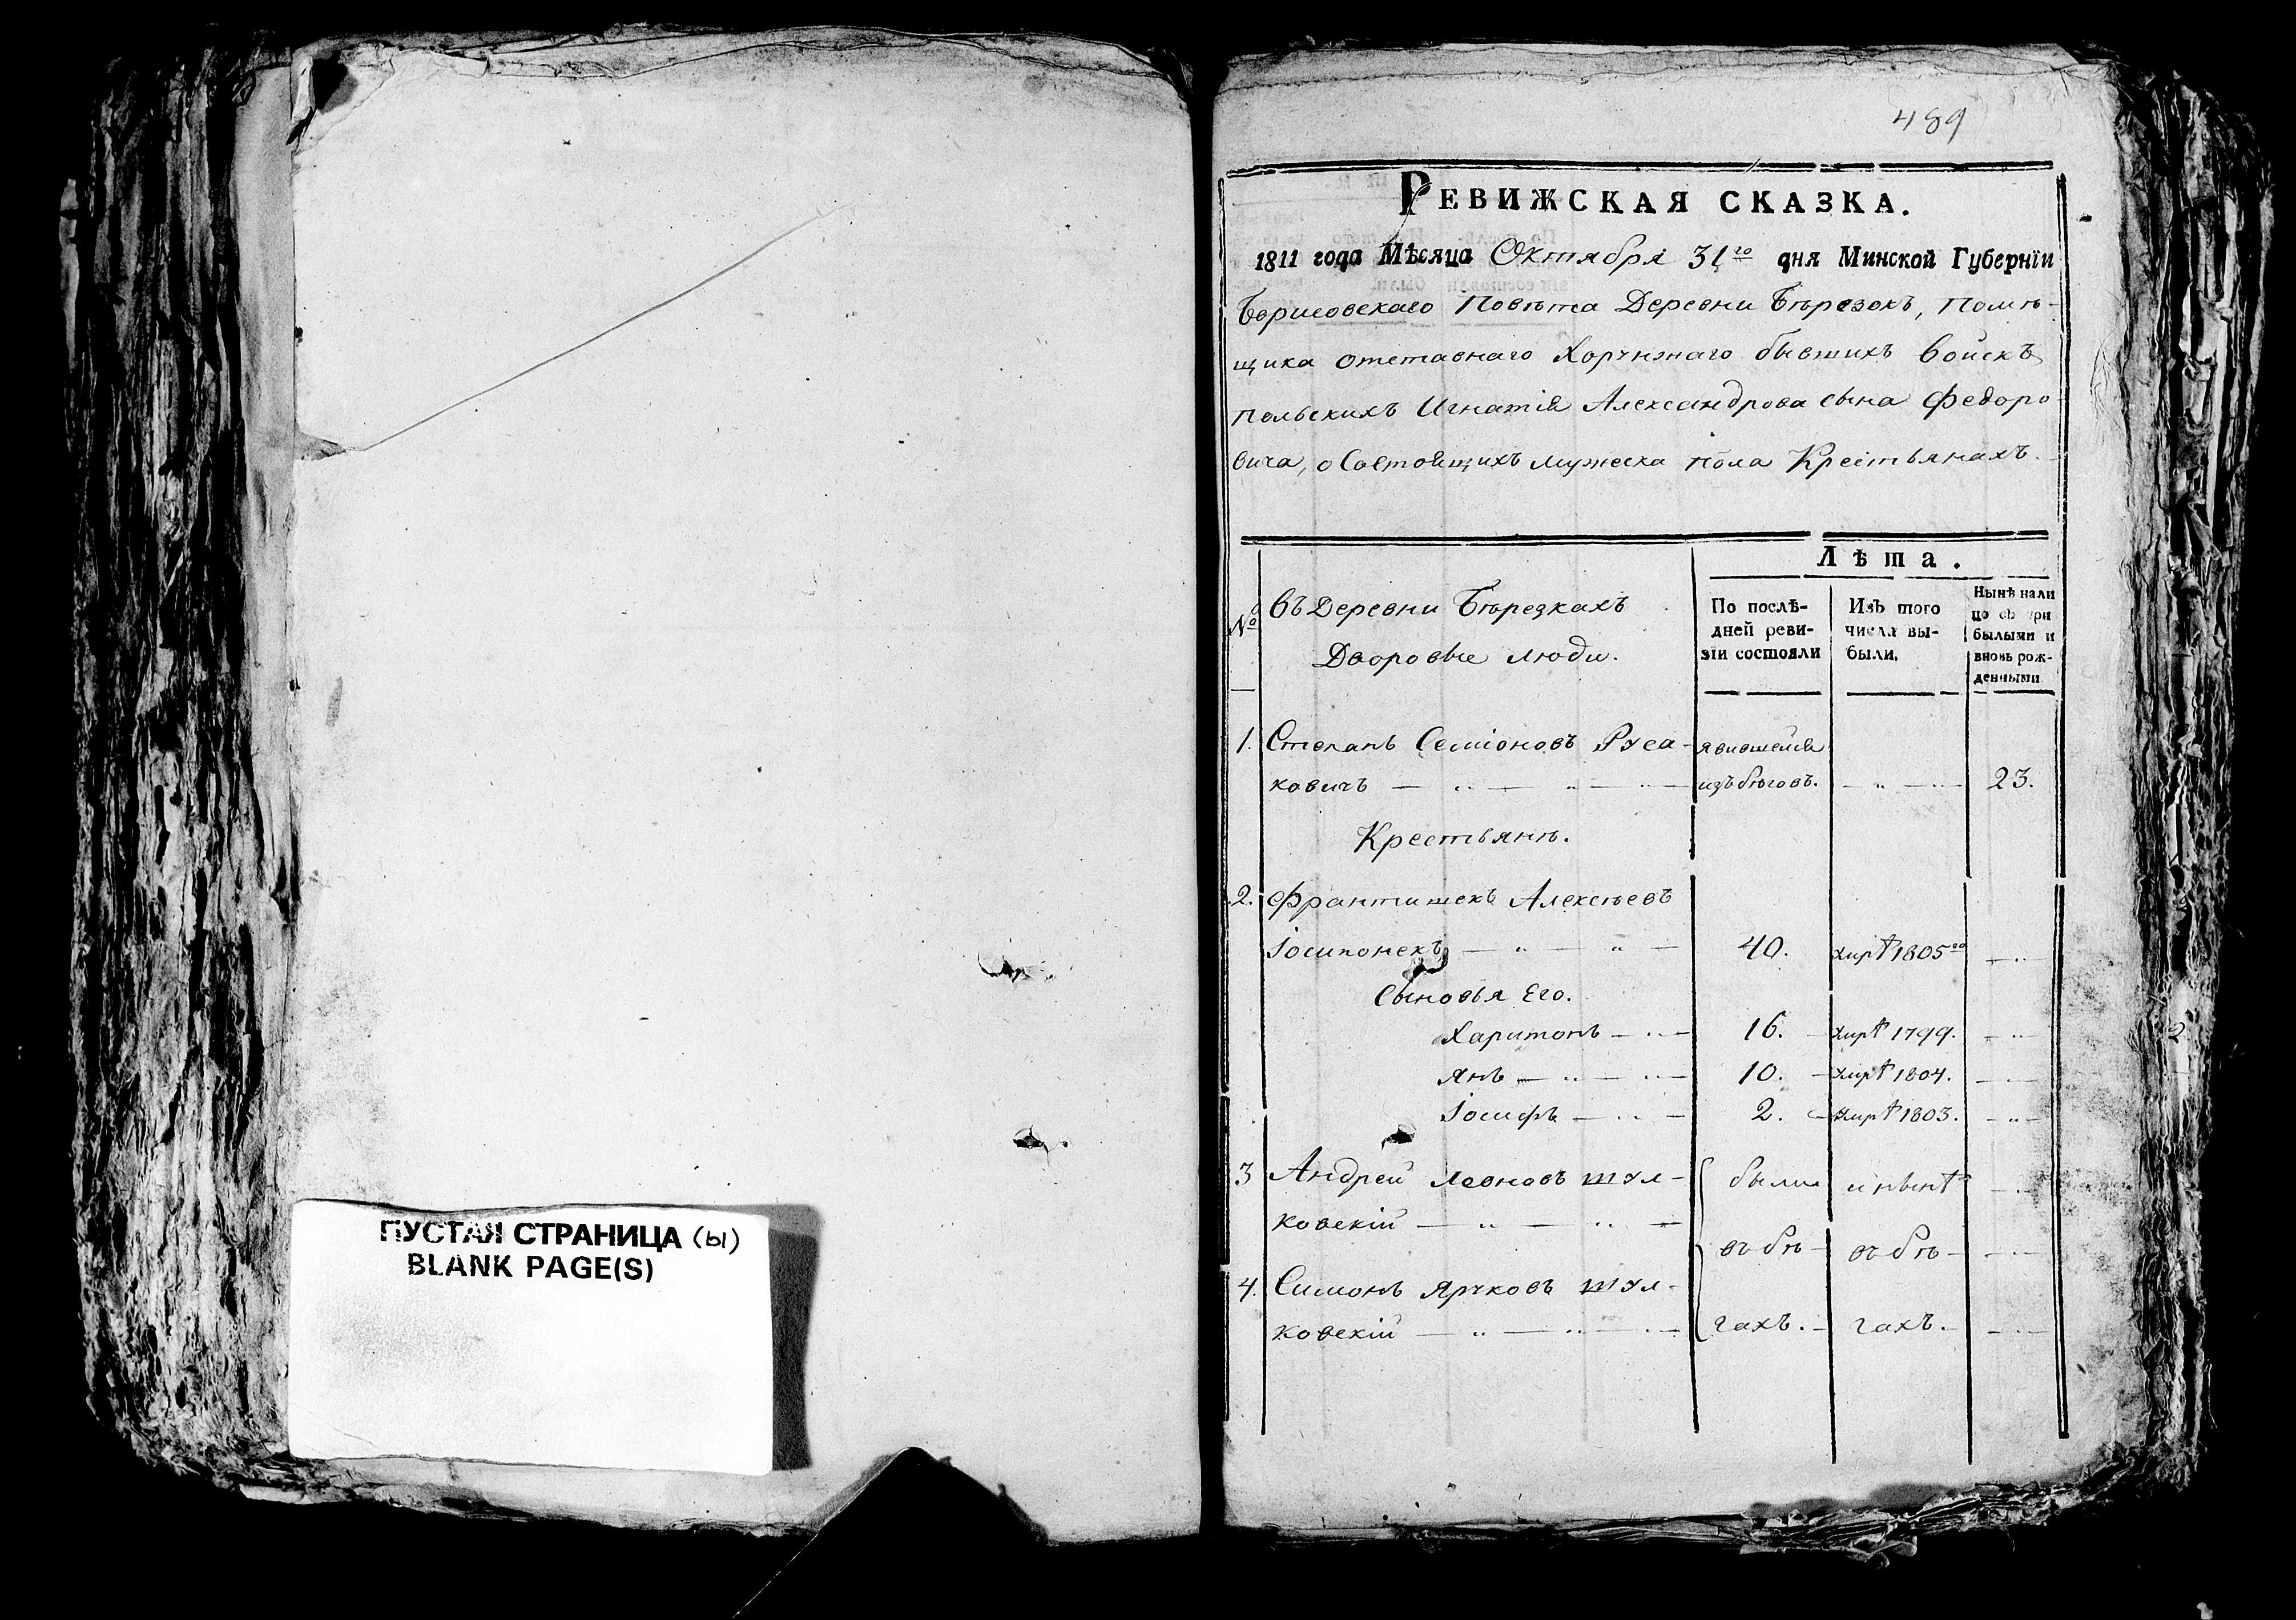 ПУСТАЯ СТРАНИЦА (ы)
BLANK PAGE(S)
489
РЕВИЖСКАЯ СКАЗКА.
1811 года Мѣсяца Октября 31го дня Минской Губернїи
Борисовскаго Повѣта Деревни Бѣрезокъ, Помѣ-
щика отставнаго Хорунжаго бывшихъ войскъ
Польскихъ Игнатія Александрова сына Федоро
вича, о Состоящихъ мужеска пола Крестьянахъ.
№
Въ Деревни Бѣрезкахъ
Дворовые люди.
Лѣта.
По послѣ-
дней реви-
зїи состояли
Изъ того
числа вы-
были.
Нынѣ нали
цо съ при
былыми и
вновь рож-
денными
1. Степанъ Семіоновъ Руса- явившейся
ковичъ — „ — „ — „ — изъ бѣговъ. — „ — 23.
Крестьянѣ.
2. Франтишекъ Алексѣевъ
Іосипонекъ — „ — „ — 40. 1805го — „
Сыновья Его.
Харитонъ — „ — 16. 1799. — „ —
Янъ — „ — „ — 10. 1804. — „ —
Іосифъ — „ — 2. 1803. — „ —
3 Андрей Леоновъ Шул- были и нынѣ — „
ковскій — „ — „ — въ бѣ- въ бѣ- — „ —
4. Симонъ Ярчковъ Шул-
ковскій — „ — „ — гахъ. — гахъ. — „ —